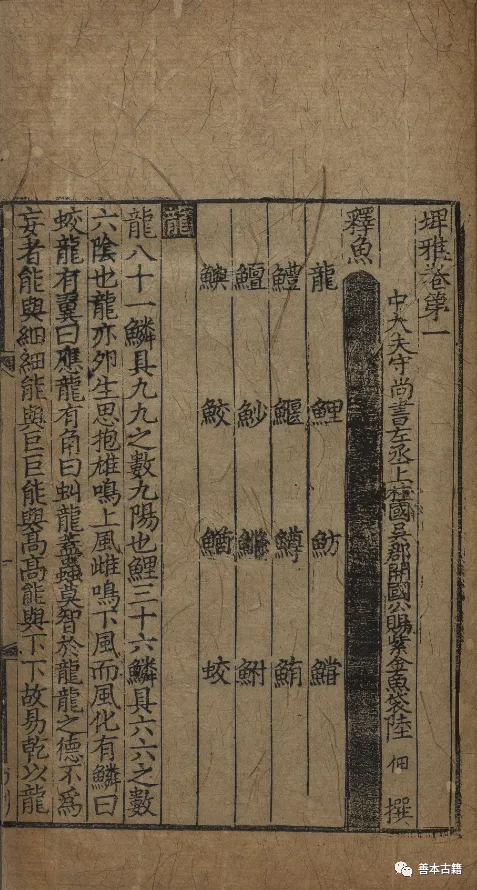 埤雅卷第一
中大夫守尚書左丞上柱國吳郡開國公賜紫金魚袋陸 佃 撰
釋魚
龍 鯉 魴 鱨
鱧 鰋 鱒 鮪
鱣 魦 鮒
鱮 鮫 鰌 蛟
龍
龍八十一鱗具九九之數九陽也鯉三十六鱗具六六之數
六陰也龍亦卵生思抱雄鳴上風雌鳴下風而風化有鱗曰
蛟龍有翼曰應龍有角曰虬龍蓋蟲莫智於龍龍之德不爲
妄者能與細細能與巨巨能與髙髙能與下下故易乾以龍
善本古籍